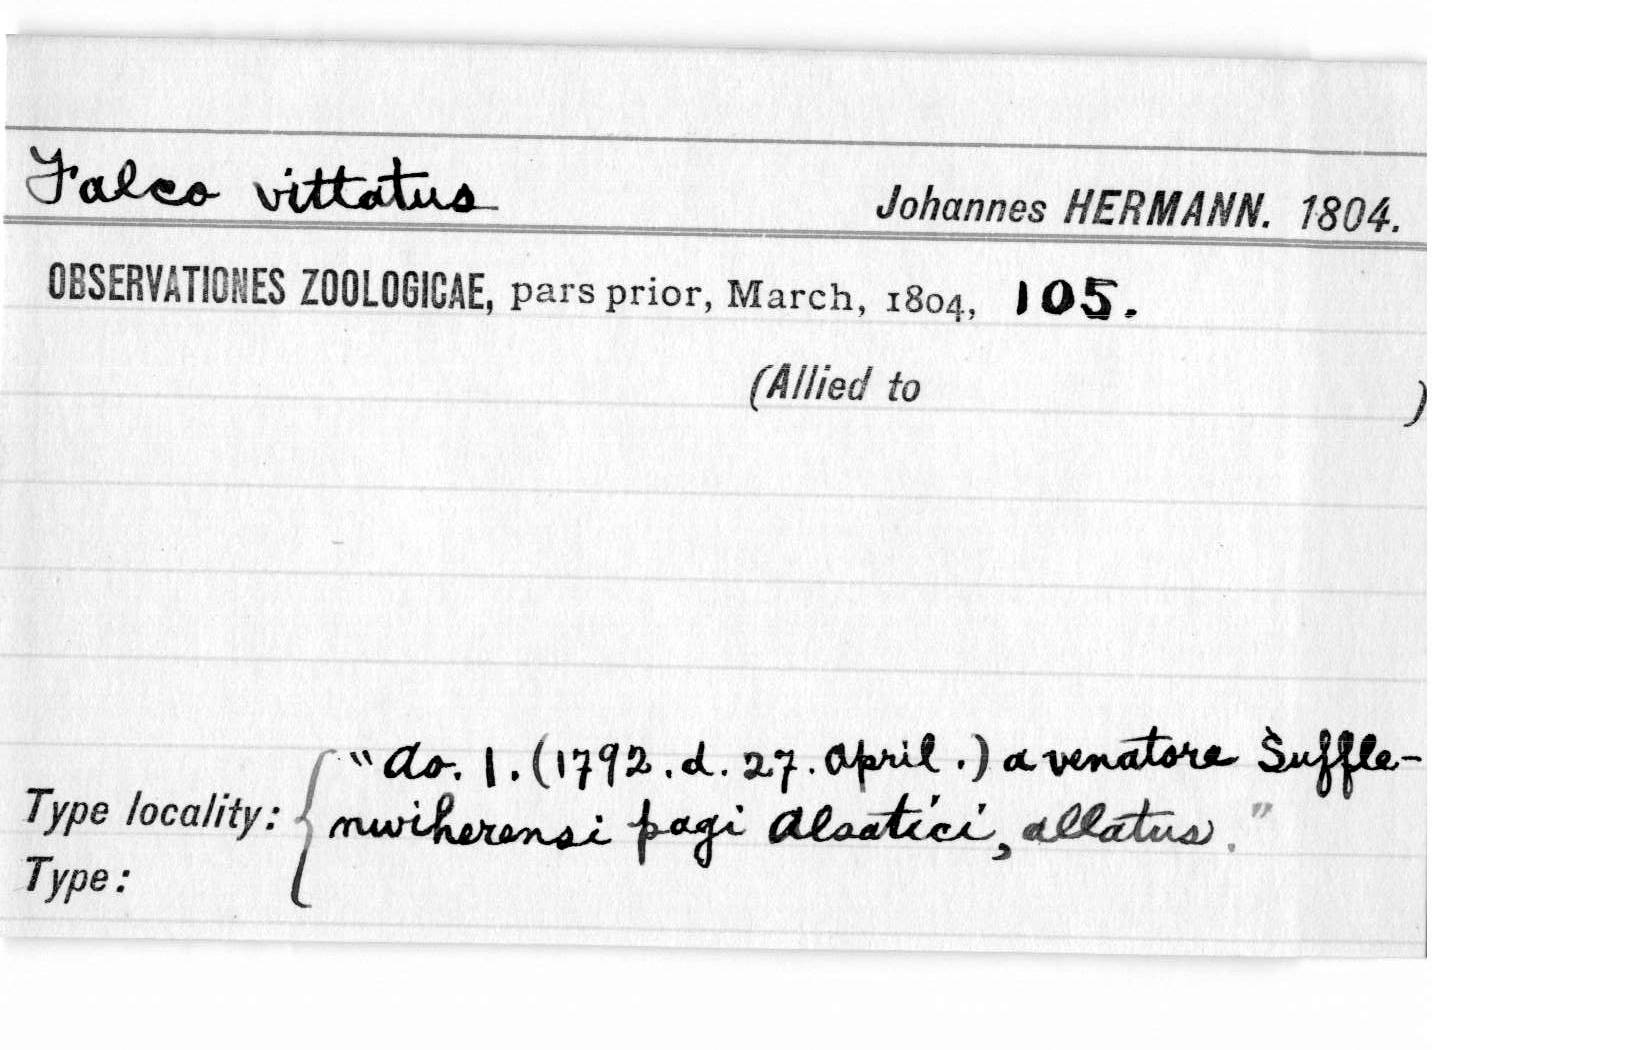 Falco vittatus
Johannes HERMANN. 1804.
OBSERVATIONES ZOOLOGICAE, pars prior, March, 1804, 105.
(Allied to )
"Ao. 1. (1792. d. 27. April.) a venatore Suffle-
Type locality: nwiherensi pagi Alsatici, allatus."
Type: